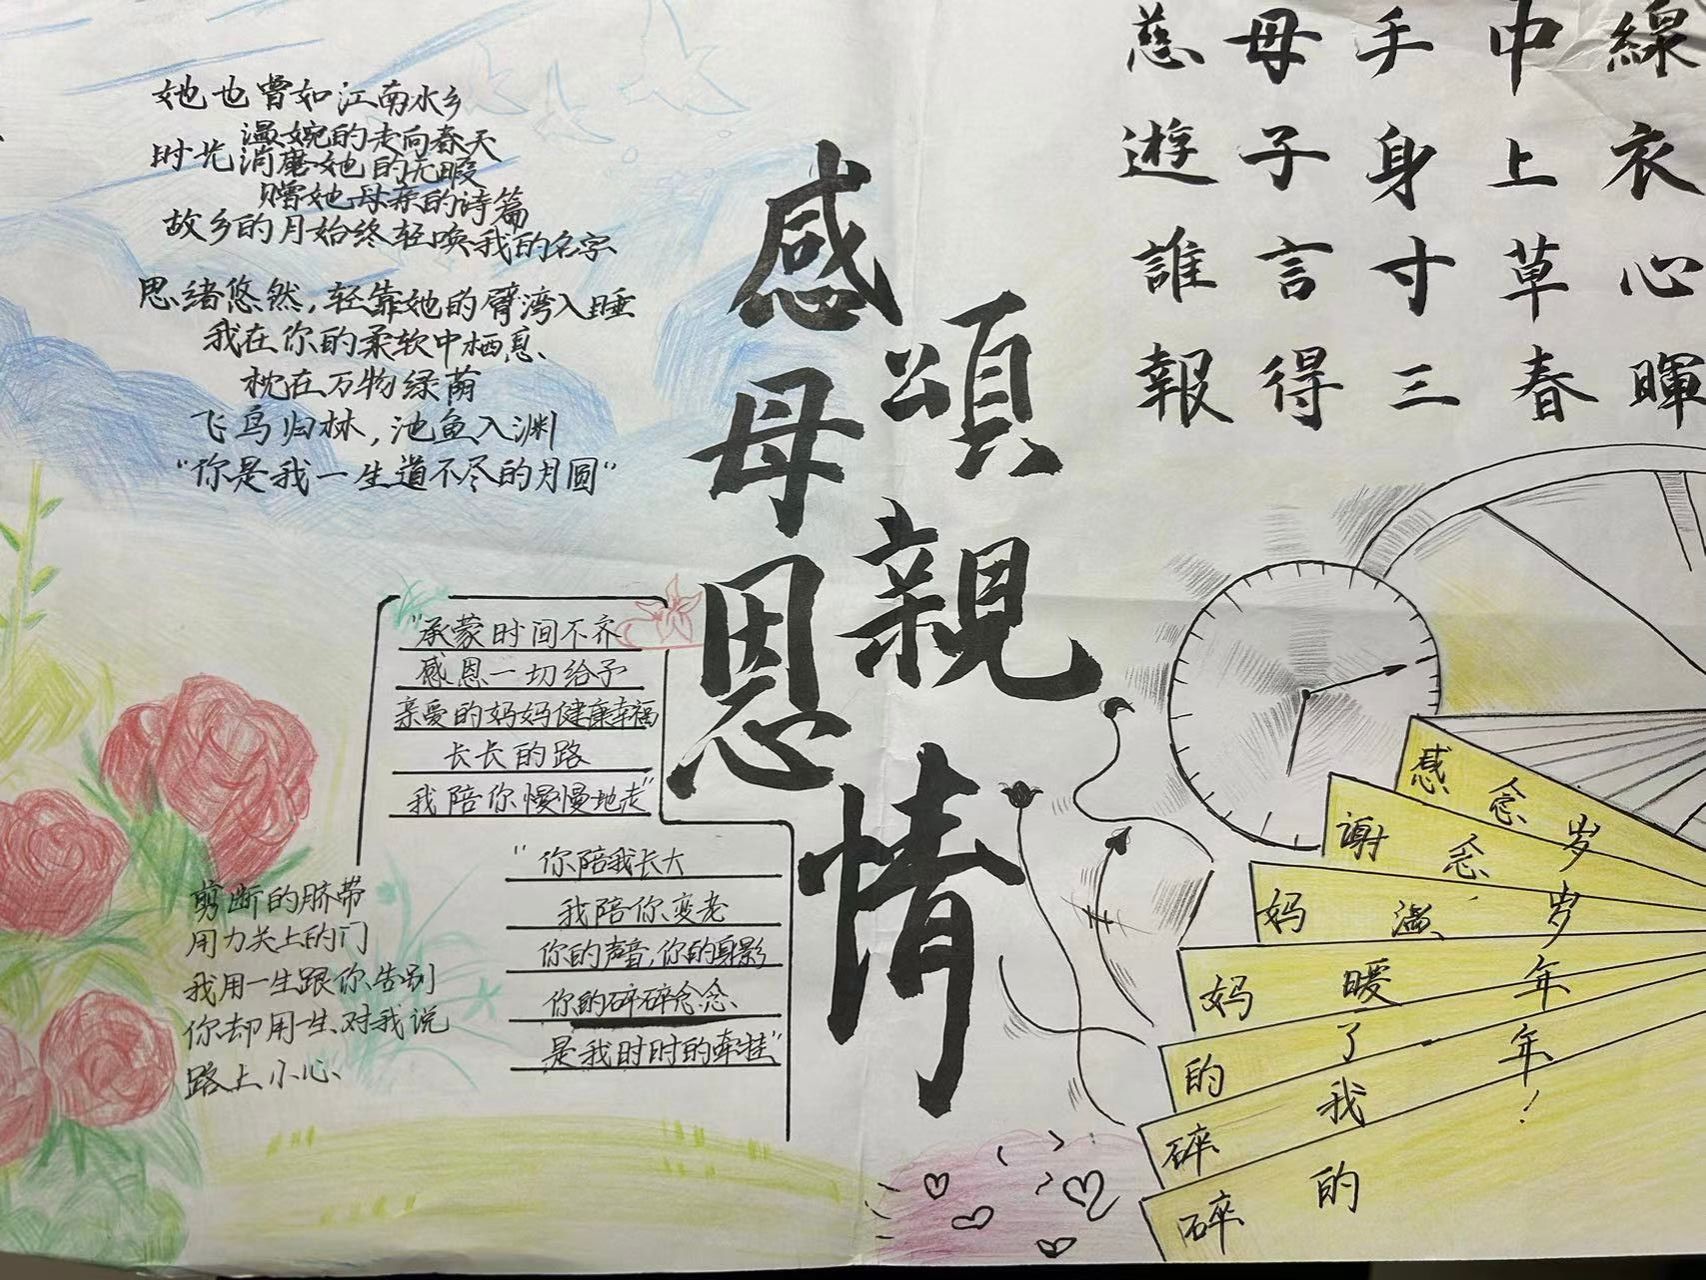 她也曾如江南水乡
温婉的走向春天
时光消磨她的无暇
赠她母亲的诗篇
故乡的月始终轻唤我的名字
思绪悠然,轻靠她的臂湾入睡
我在你的柔软中栖息
枕在万物绿荫
飞鸟归林,池鱼入渊
“你是我一生道不尽的月圆”
感母恩情
頌親
慈母手中線
遊子身上衣
誰言寸草心
報得三春暉
“承蒙时间不齐
感恩一切给予
亲爱的妈妈健康幸福
长长的路
我陪你慢慢地走”
“你陪我长大
我陪你变老
你的声音,你的身影
你的碎碎念念
是我时时的牵挂”
剪断的脐带
用力关上的门
我用一生跟你告别
你却用一生对我说
路上小心
感谢妈妈的碎碎
念念温暖了我的
岁岁年年!